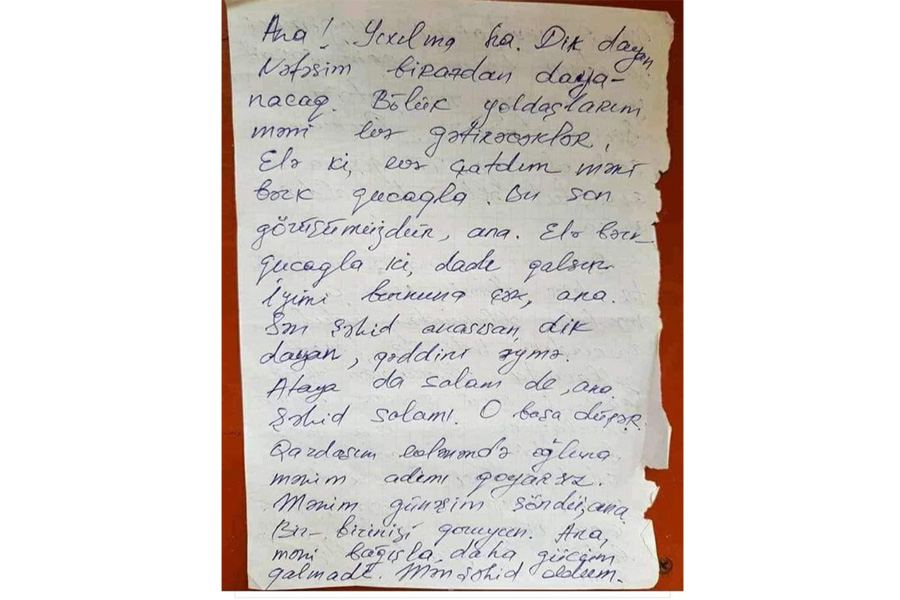 Ana! Yıxılma ha. Dik dayan.
Nəfəsim birazdan daya-
nacaq. Bölük yoldaşlarım
məni evə gətirəcəklər,
Elə ki, evə çatdım məni
bərk qucaqla. Bu son
görüşümüzdür, ana. Elə bərk
qucaqla ki, dadı qalsın.
İyimi burnuna çək, ana.
Sən şəhid anasısan, dik
dayan, qəddini əymə.
Ataya da salam de, ana.
Şəhid salamı. O başa düşər.
Qardaşım evlənəndə oğluna
mənim adımı qoyarsız.
Mənim günəşim söndü, ana.
Bir-birinizi qoruyun. Ana,
məni bağışla, daha gücüm
qalmadı. Mən şəhid oldum.